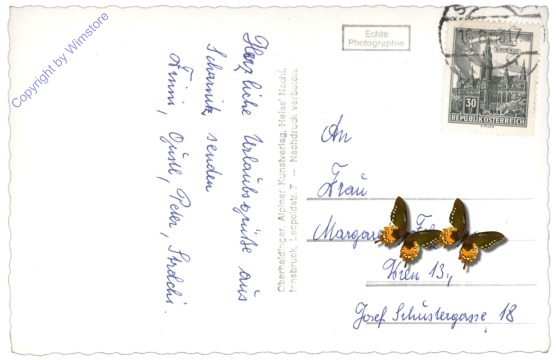 Copyright by Wimstore
Herzliche Urlaubsgrüße aus
Scharnitz senden
Finni, Gustl, Peter, Strolchi.
Oberhaidinger, Alpiner Kunstverlag, Heiss' Nachf.
Innsbruck, Leopoldstr. 7 — Nachdruck verboten.
Echte
Photographie
30
REPUBLIK ÖSTERREICH
An
Frau
Wien 13,
Josef Schustergasse 18